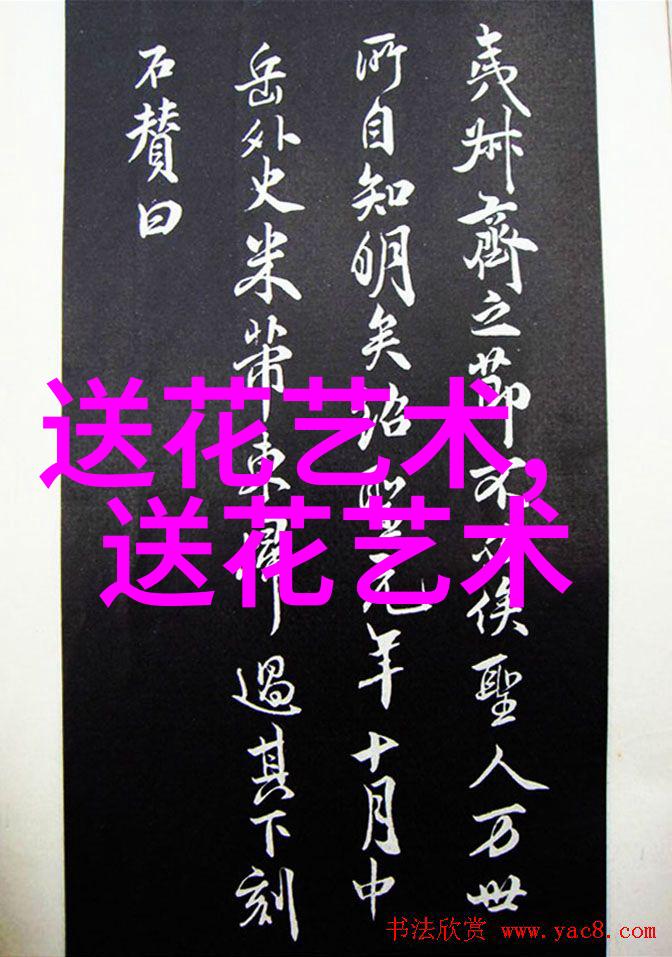 夷叔齊之節不俟聖人万世
所自知明矣紹聖元年十月中
岳外史米芾東歸過其下刻
石賛曰
送花艺术,
送花艺术
书法欣赏 www.yac8.com